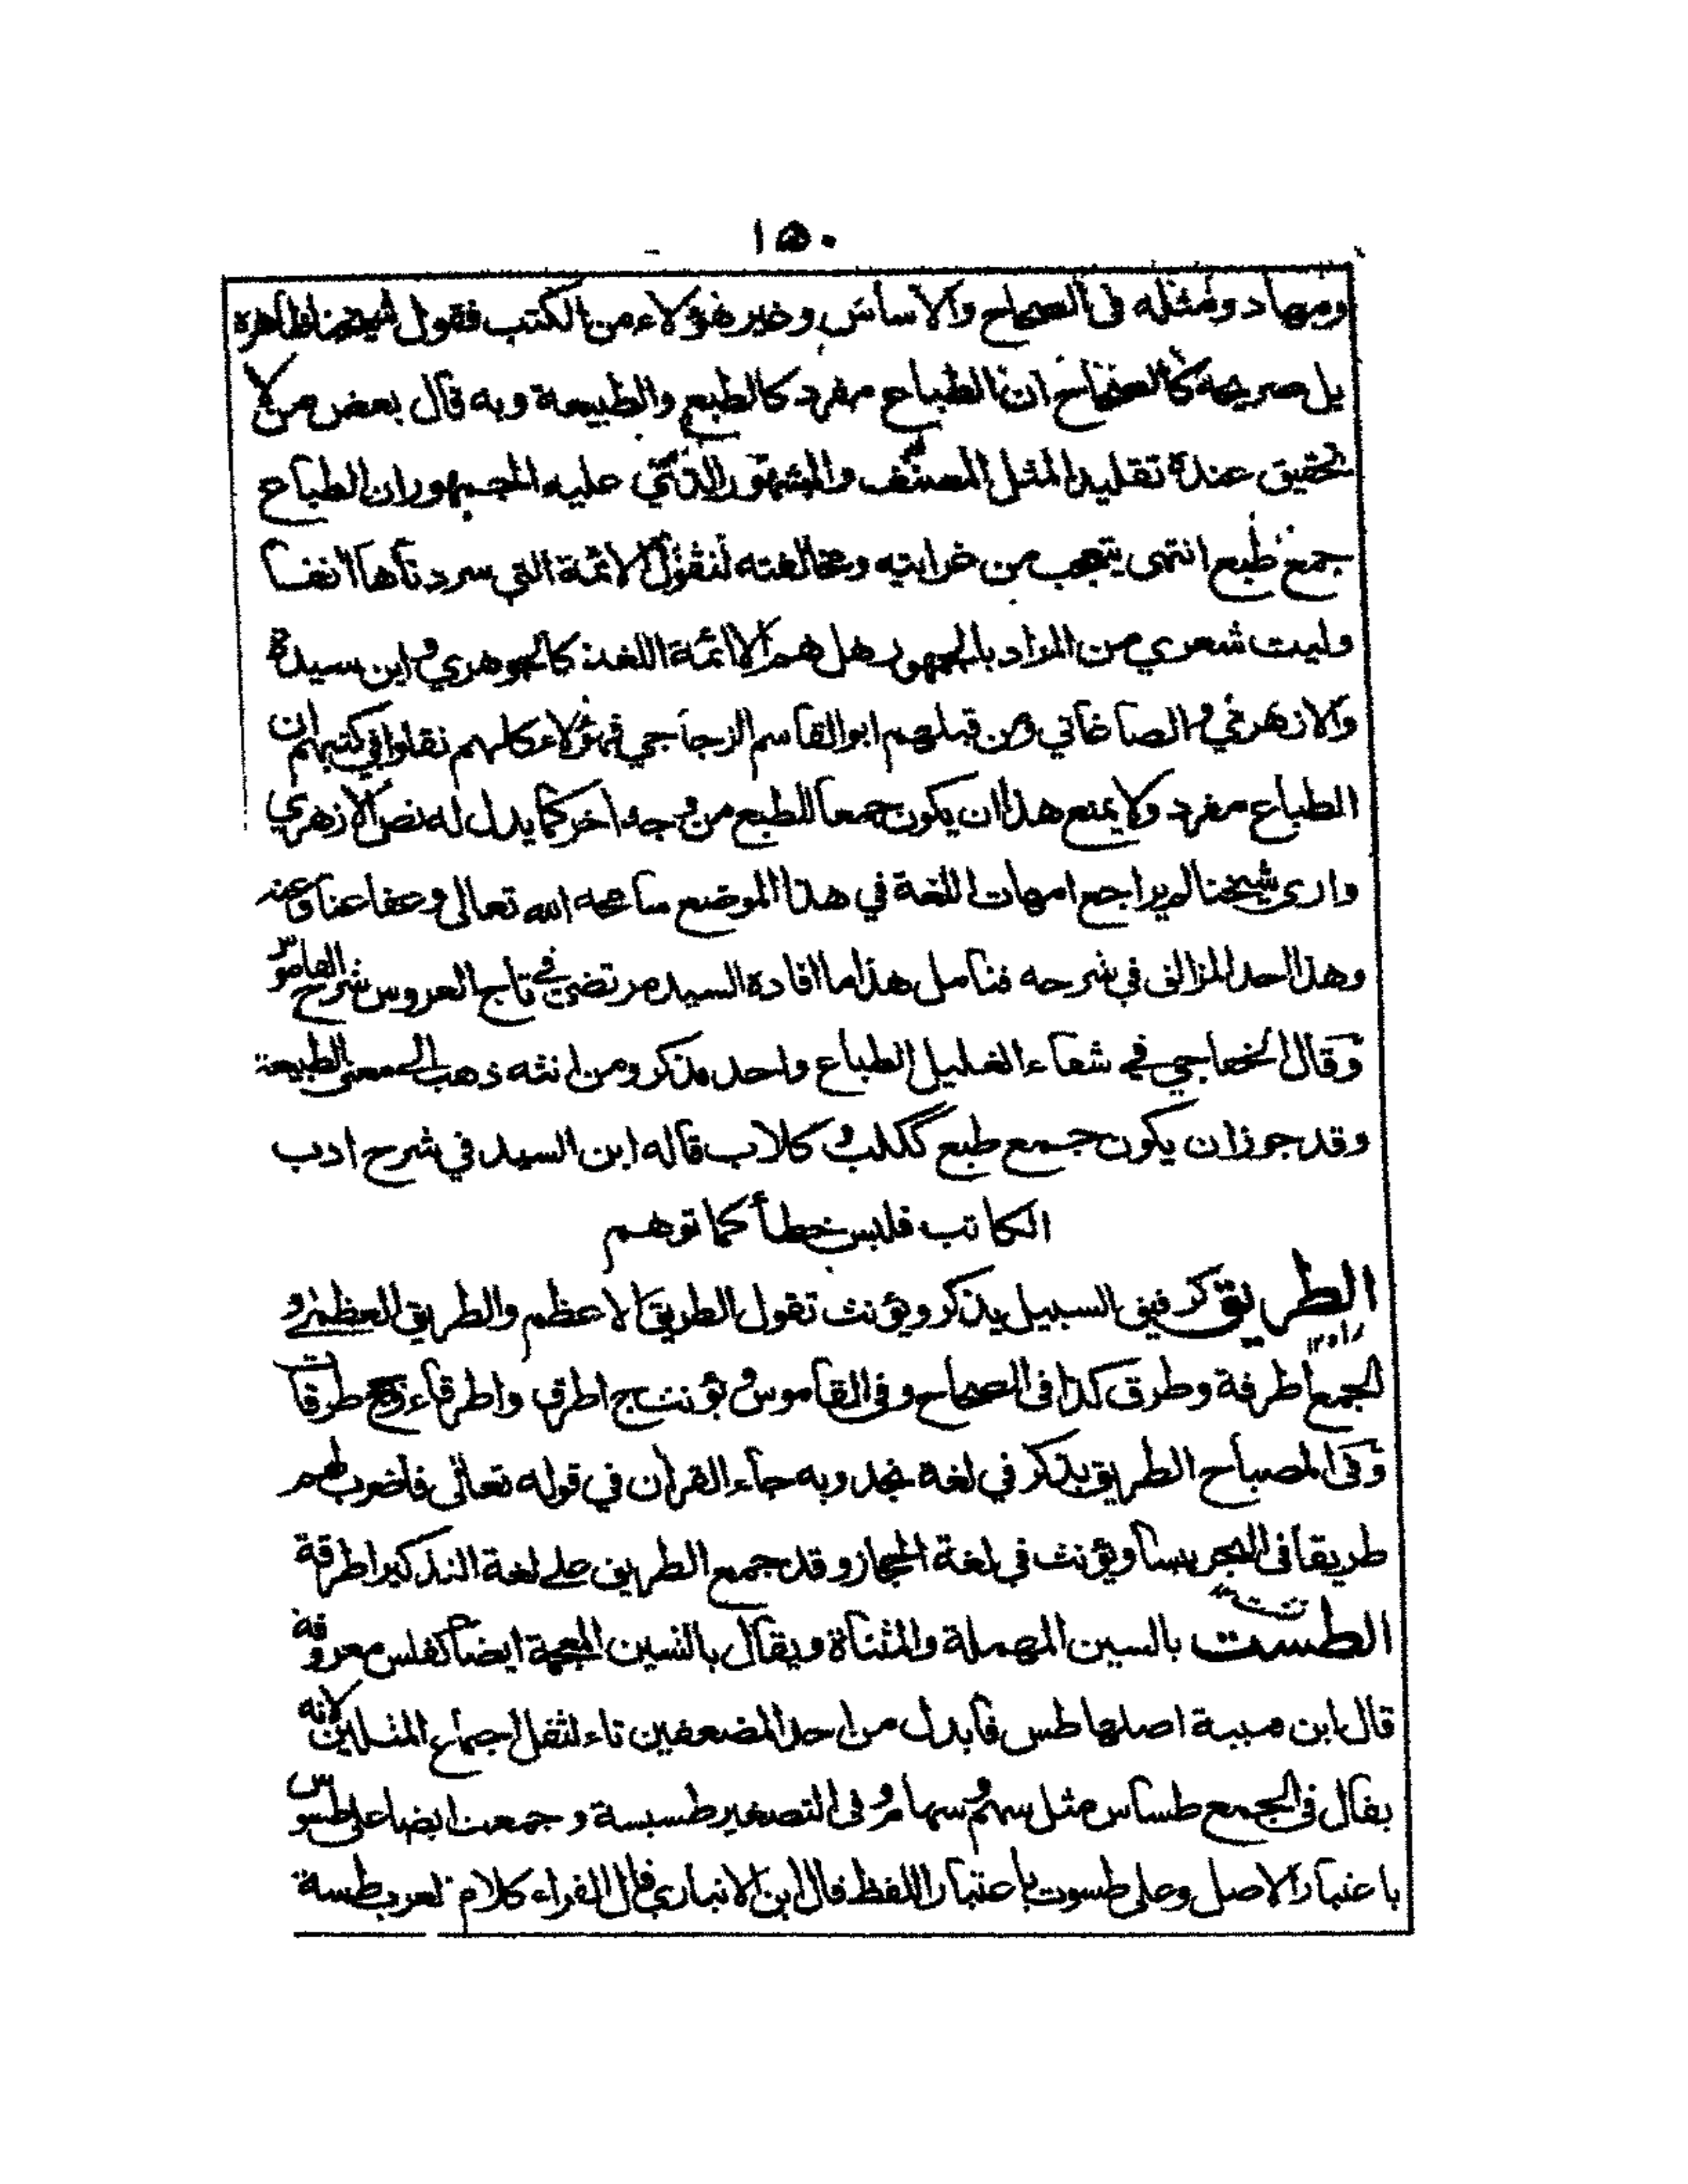 ١٥٠
ومهاد ومثله فى الصحاح والاساس وغير هؤلاء من الكتب فقول شيخنا ظاهره
بل صريحه كالصحاح ان الطباع مفرد كالطبع والطبيعة وبه قال بعض من لا
تحقيق عنده تقليدا لمثل المصنف والمشهور الذي عليه الجمهور ان الطباع
جمع طبع انتهى يتعجب من غرابته ومخالفته لنقول الائمة التي سردناها انفا
وليت شعري من المراد بالجمهور هل هم الا ائمة اللغة كالجوهري وابن سيدة
والازهري والصاغاني ومن قبلهم ابو القاسم الزجاجي فهؤلاء كلهم نقلوا في كتبهم ان
الطباع مفرد ولا يمنع هذا ان يكون جمعا للطبع من وجه اخر كما يدل له نص الازهري
وارى شيخنا لم يراجع امهات اللغة في هذا الموضع سامحه الله تعالى وعفا عنا وعنه
وهذا احد المزالق في شرحه فتامل هذا ما افاده السيد مرتضى في تاج العروس شرح القاموس
وقال الخفاجي في شفاء الغليل الطباع واحد مذكر ومن انثه ذهب الى معنى الطبيعة
وقد جوز ان يكون جمع طبع ككلب وكلاب قاله ابن السيد في شرح ادب
الكاتب فليس خطأ كما توهم
الطريق كرفيق السبيل يذكر ويؤنث تقول الطريق الاعظم والطريق العظمى و
الجمع اطرقة وطرق كذا فى الصحاح وفى القاموس ويؤنث ج اطرق واطرقاء وجج طرقات
وفى المصباح الطريق يذكر في لغة نجد وبه جاء القران في قوله تعالى فاضرب لهم
طريقا فى البحر يبسا ويؤنث في لغة الحجاز وقد جمع الطريق على لغة التذكير اطرقة
الطست بالسين المهملة والمثناة ويقال بالشين المعجمة ايضا كفلس معروفة
قال ابن قتيبة اصلها طس فابدل من احد المضعفين تاء لثقل اجتماع المثلين لانه
يقال فى الجمع طساس مثل سهم وسهام وفى التصغير طسيسة وجمعت ايضا على طسوس
باعتبار الاصل وعلى طسوت باعتبار اللفظ قال ابن الانباري قال الفراء كلام العرب طسة